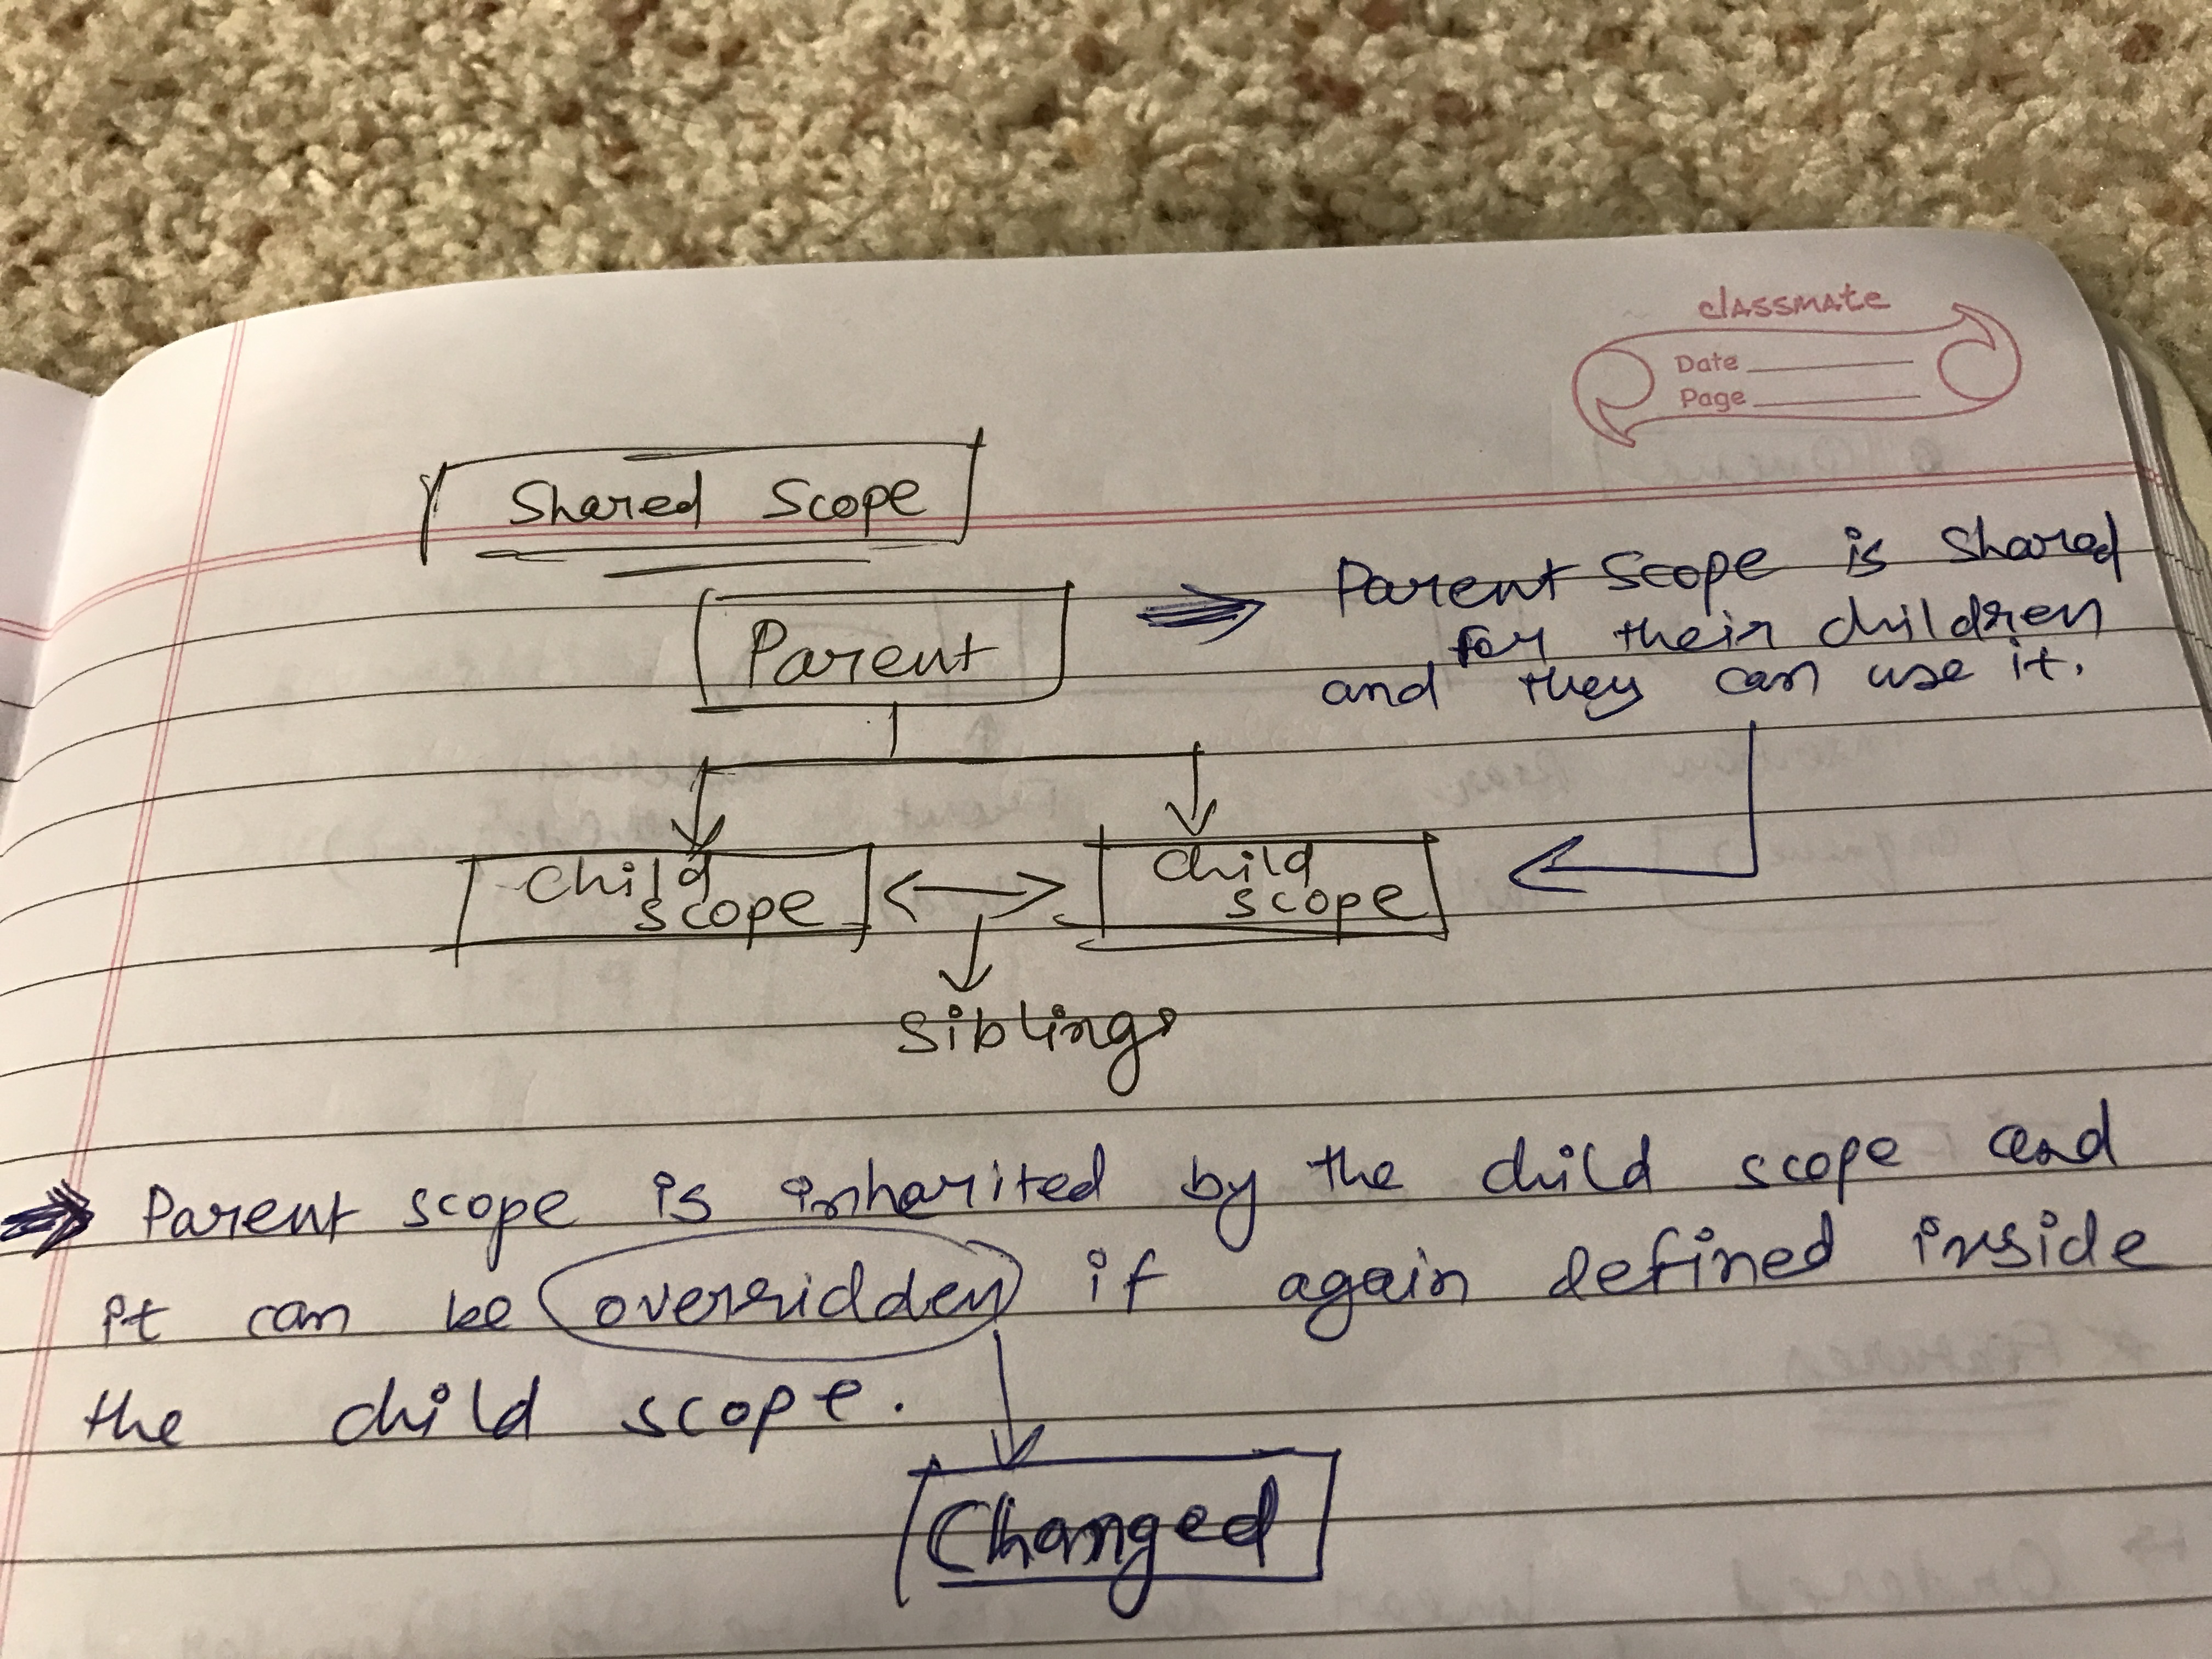 classmate
Date
Page
Shared Scope
Parent
Parent Scope is Shared
for their children
and they can use it.
Child
scope
Child
scope
Siblings
Parent scope is inharited by the child scope and
it can be overridden if again defined inside
the child scope.
Changed